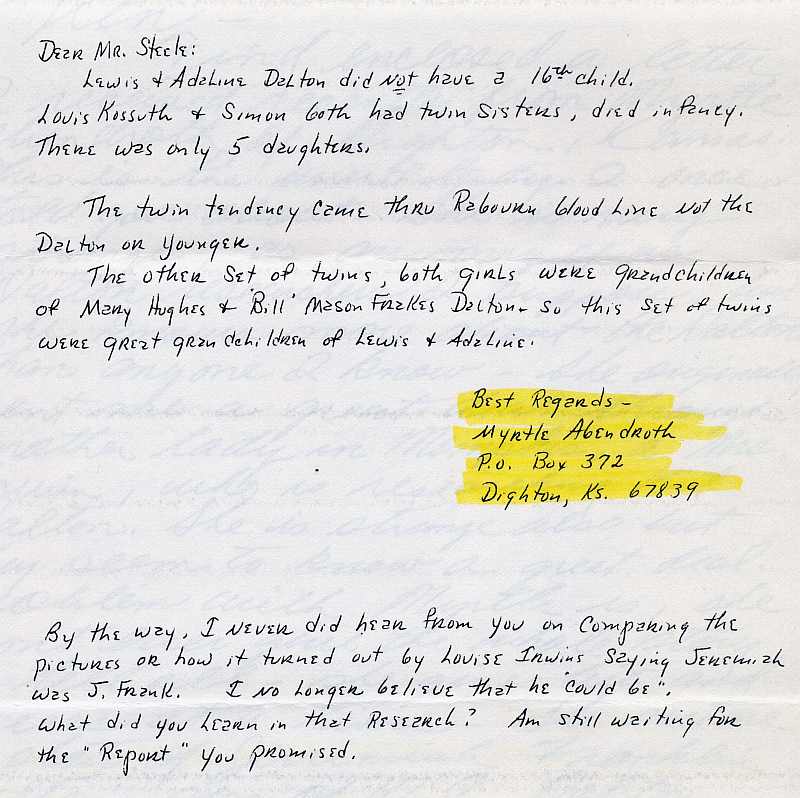 Dear Mr. Steele:
Lewis & Adaline Dalton did not have a 16th child.
Louis Kossuth & Simon both had twin sisters, died infancy.
There was only 5 daughters.
The twin tendency came thru Rabourn blood line not the
Dalton or Younger.
The other set of twins, both girls were grandchildren
of Mary Hughes & "Bill" Mason Frakes Dalton - so this set of twins
were great grandchildren of Lewis & Adaline.
Best Regards -
Myrtle Abendroth
P.O. Box 372
Dighton, Ks. 67839
By the way, I never did hear from you on comparing the
pictures or how it turned out by Louise Irwins saying Jeremiah
was J. Frank. I no longer believe that he "could be".
What did you learn in that research? Am still waiting for
the "Report" you promised.